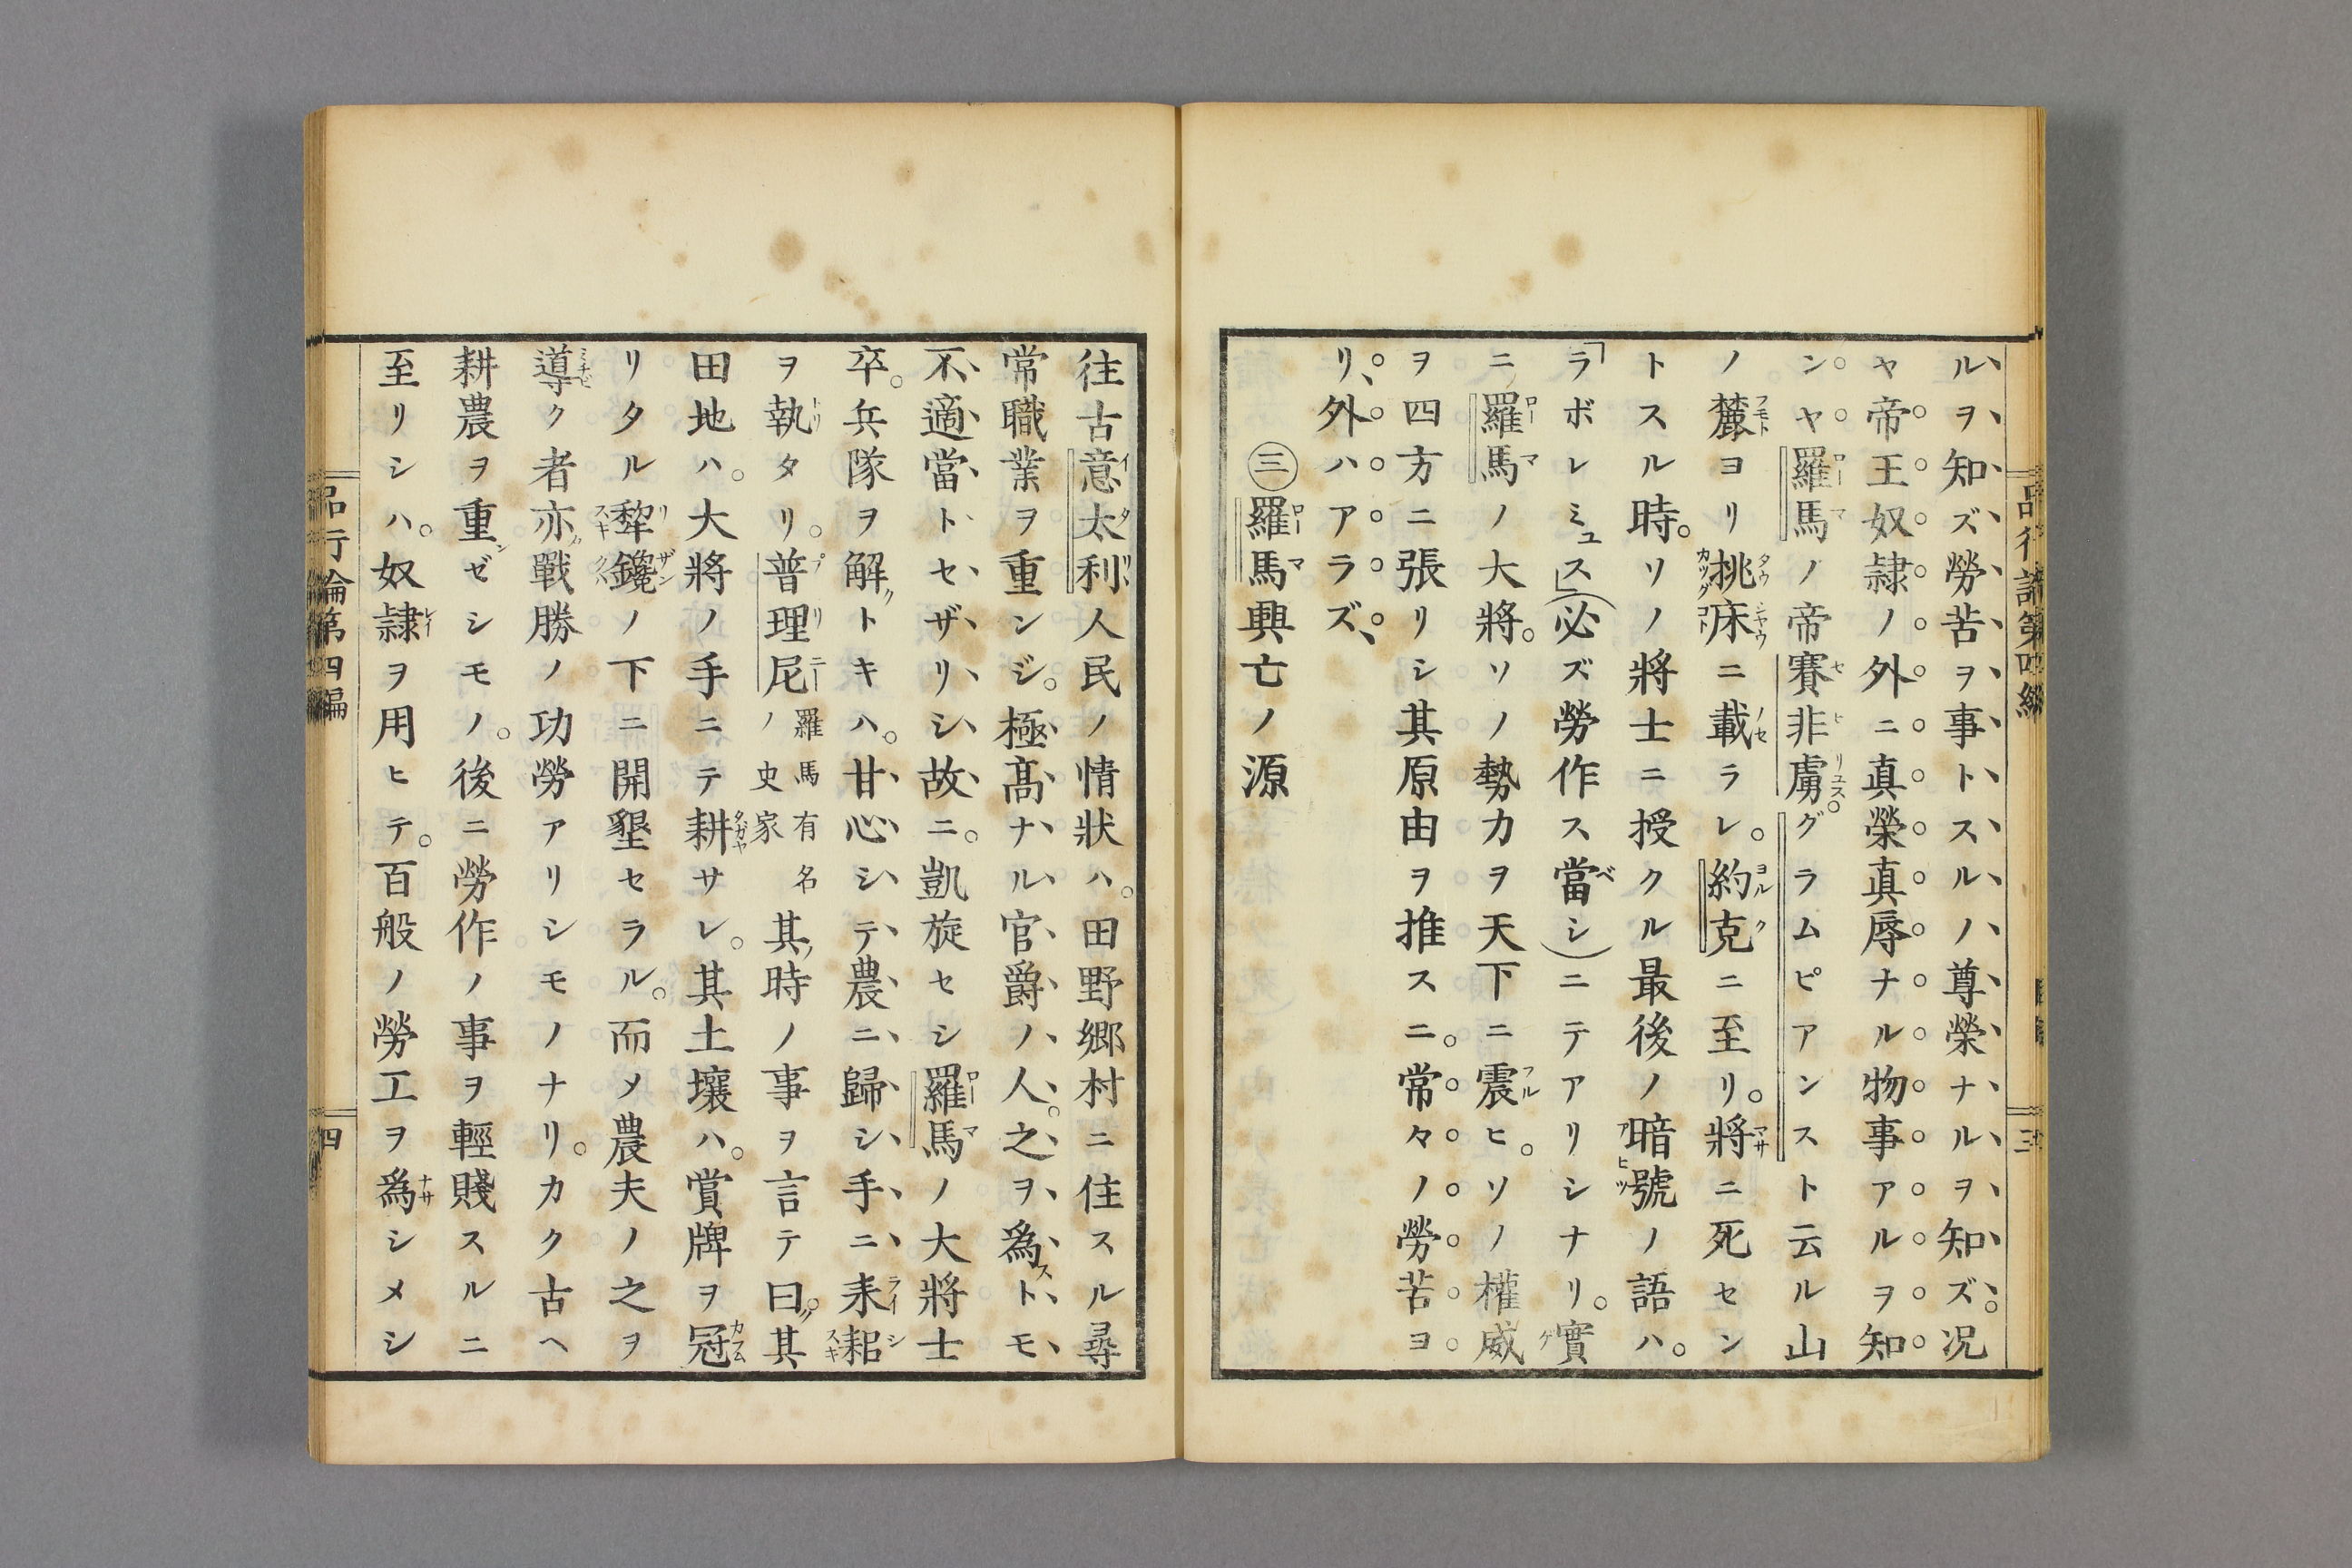 ルヲ知ズ勞苦ヲ事トスルノ尊榮ナルヲ知ズ。况
ヤ帝王奴隷ノ外ニ真榮真辱ナル物事アルヲ知
ンヤ羅馬ノ帝賽非虜。グラムピアンスト云ル山
ノ麓ヨリ挑床ニ載ラレ。約克ニ至リ。將ニ死セン
トスル時。ソノ將士ニ授クル最後ノ暗號ノ語ハ。
「ラボレミュス」(必ズ勞作ス當シ)ニテアリシナリ。實
ニ羅馬ノ大將。ソノ勢力ヲ天下ニ震ヒ。ソノ權威
ヲ四方ニ張リシ其原由ヲ推スニ。常々ノ勞苦ヨ
リ外ハアラズ
㊂羅馬興亡ノ源
往古意太利人民ノ情狀ハ。田野郷村ニ住スル尋
常職業ヲ重ンジ。極髙ナル官爵ノ人。之ヲ為ストモ
不適當トセザリシ故ニ。凱旋セシ羅馬ノ大將士
卒。兵隊ヲ解トキハ。甘心シテ農ニ歸シ手ニ耒耜
ヲ執タリ。普理尼羅馬有名ノ史家其時ノ事ヲ言テ曰。其
田地ハ。大將ノ手ニテ耕サレ。其土壤ハ。賞牌ヲ冠
リタル犂鑱ノ下ニ開墾セラル。而メ農夫ノ之ヲ
導ク者亦戰勝ノ功勞アリシモノナリ。カク古ヘ
耕農ヲ重ゼシモノ。後ニ勞作ノ事ヲ輕賤スルニ
至リシハ。奴隷ヲ用ヒテ。百般ノ勞工ヲ爲シメシ
品行論第四編
四